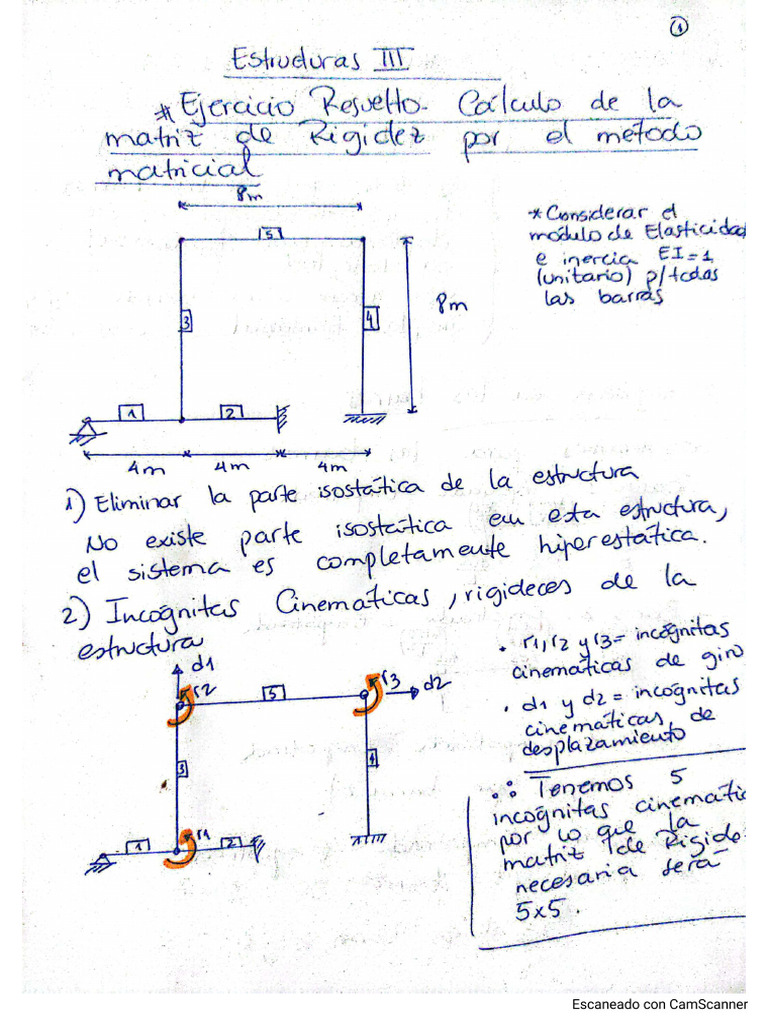 1
Estructuras III
* Ejercicio Resuelto. Cálculo de la
matriz de Rigidez por el método
matricial
8m
5
3
4
8m
1
2
4m 4m 4m
* Considerar el
módulo de Elasticidad
e inercia EI=1
(unitario) p/todas
las barras
1) Eliminar la parte isostática de la estructura
No existe parte isostática en esta estructura,
el sistema es completamente hiperestática.
2) Incógnitas Cinematicas, rigideces de la
estructura
d1
r2
5
r3
d2
3
4
1
r1
2
• r1, r2 y r3 = incógnitas
cinemáticas de giro
• d1 y d2 = incógnitas
cinemáticas de
desplazamiento
∴ Tenemos 5
incógnitas cinematic
por lo que la
matriz de Rigide
necesaria será
5x5.
Escaneado con CamScanner